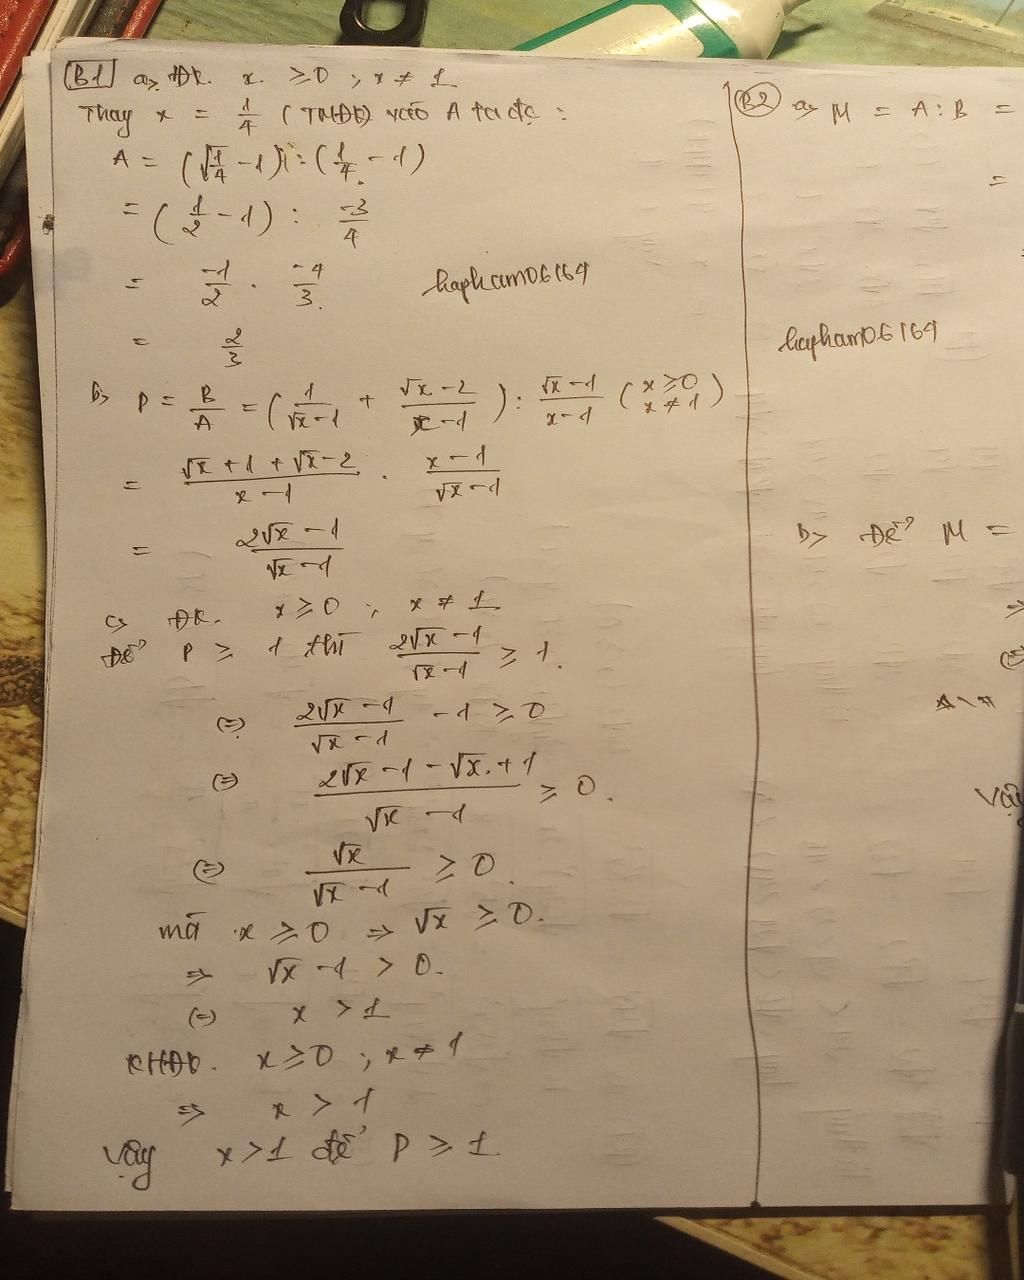 B1 a, ĐK. x. ≥0 ; x ≠ 1
Thay x = 1/4 (TMĐK) vào A ta đc :
A = (√1/4 - 1) : (1/4 - 1)
= (1/2 - 1) : -3/4
= -1/2 . -4/3
= 2/3
hapham06164
b, P = B/A = (1/(√x-1) + (√x-2)/(x-1)) : (√x-1)/(x-1) (x≥0 x≠1)
= (√x+1+√x-2)/(x-1) . (x-1)/(√x-1)
= (2√x-1)/(√x-1)
c, ĐK. x≥0 ; x ≠ 1
Để P ≥ 1 thì (2√x-1)/(√x-1) ≥ 1.
(=) (2√x-1)/(√x-1) -1 ≥ 0
(=) (2√x-1-√x+1)/(√x-1) ≥ 0.
(=) √x/(√x-1) ≥ 0.
mà x ≥ 0 => √x ≥ 0.
=> √x -1 > 0.
(=) x > 1
KHĐK. x≥0 ; x≠1
=> x > 1
Vậy x>1 để P ≥ 1
B2 a, M = A:B =
=
hapham06164
b, Để M =
=>
(=)
Vậy